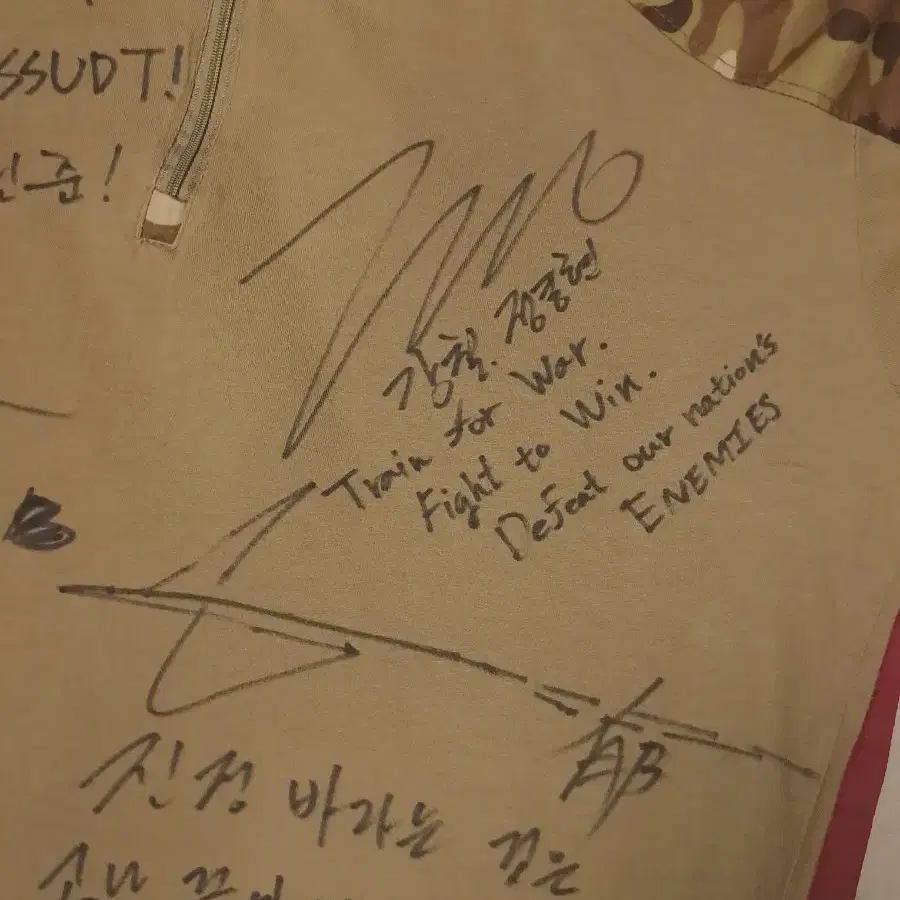 SSUDT!
준!
강철. 정종현
Train for War.
Fight to Win.
Defeat our nation's
ENEMIES
B
AB
진정 바라는 것은